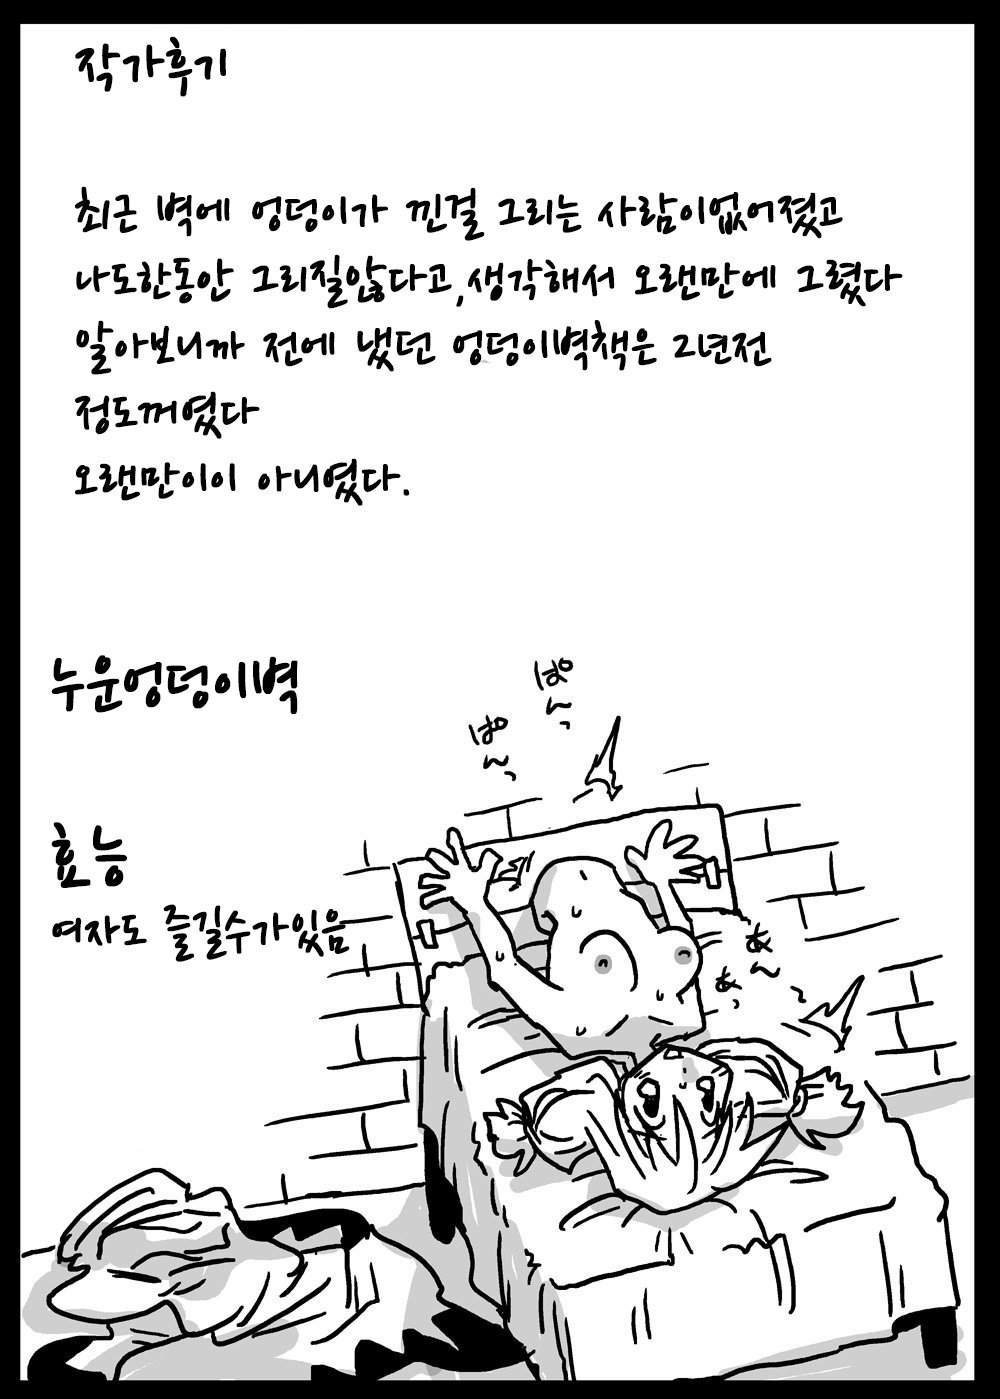 작가후기
최근 벽에 엉덩이가 낀걸 그리는 사람이없어졌고
나도한동안 그리질않다고,생각해서 오랜만에 그렸다
알아보니까 전에 냈던 엉덩이벽책은 2년전
정도꺼였다
오랜만이이 아니였다.
누운엉덩이벽
ぱん
ぱん
효능
여자도 즐길수가있음
あん
あっ